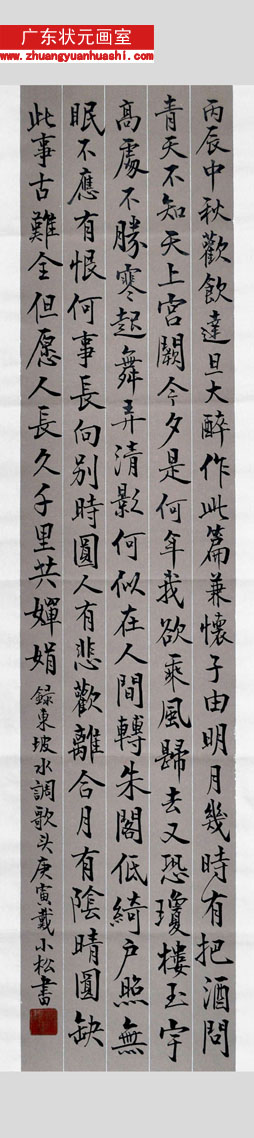 广东状元画室
www.zhuangyuanhuashi.com
丙辰中秋歡飲達旦大醉作此篇兼懷子由明月幾時有把酒問
青天不知天上宮闕今夕是何年我欲乘風歸去又恐瓊樓玉宇
高處不勝寒起舞弄清影何似在人間轉朱閣低綺户照無
眠不應有恨何事長向别時圓人有悲歡離合月有陰晴圓缺
此事古難全但愿人長久千里共嬋娟 録東坡水調歌头庚寅戴小松書